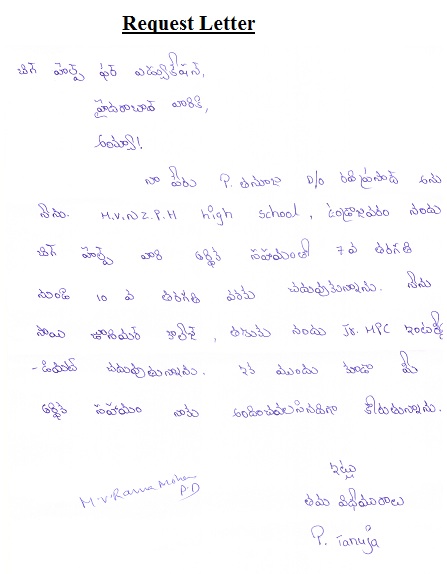 Request Letter
బిగ్ హెల్ప్ ఫర్ ఎడ్యుకేషన్,
హైదరాబాద్ వారికి,
అయ్యా!
నా పేరు P. తనూజ D/o రవిప్రసాద్ అను
నేను. M.V.N Z.P.H high school, ఉండ్రాజవరం నందు
బిగ్ హెల్ప్ వారి ఆర్థిక సహాయంతో 7 వ తరగతి
నుండి 10 వ తరగతి వరకు చదువుకున్నాను. నేను
సాయి జూనియర్ కాలేజ్, తణుకు నందు Jr. MPC ఇంటర్మీ
-డియట్ చదువుతున్నాను. ఇక ముందు కూడా మీ
ఆర్థిక సహాయం నాకు అందించవలసినదిగా కోరుతున్నాను.
ఇట్లు
తమ విధేయురాలు
P. Tanuja
M.V. Rama Mohan
P.D